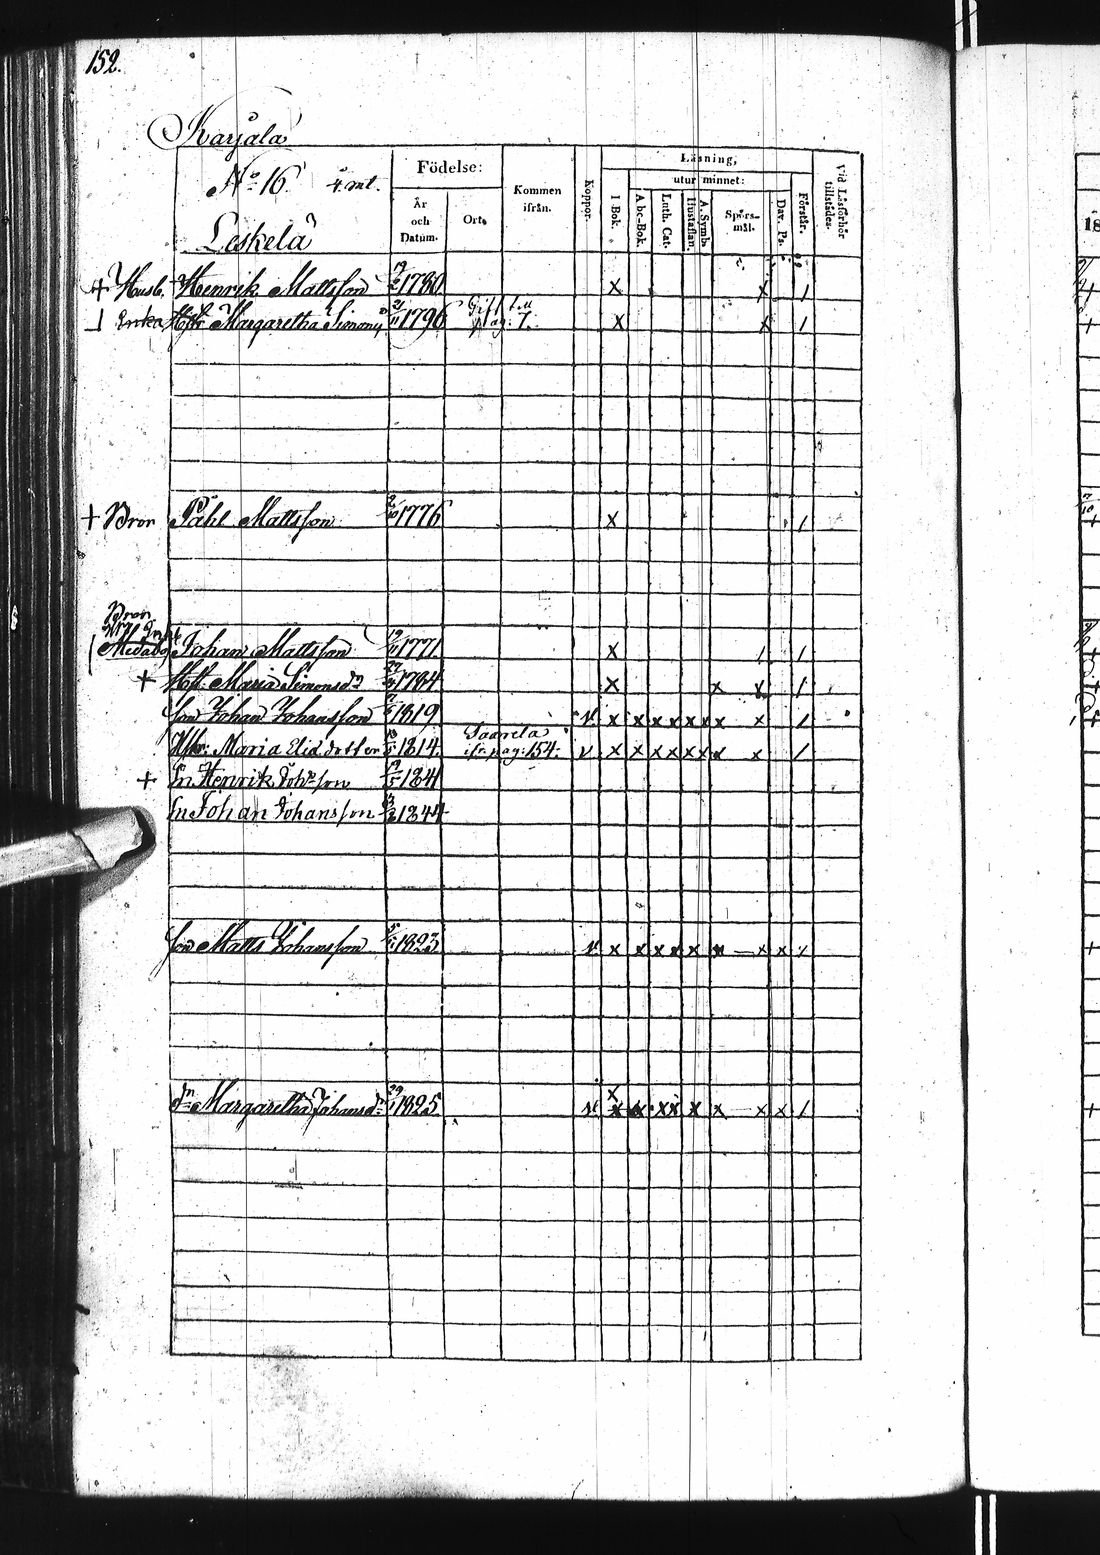 152.
Karjala
No 16. mt.
Leskelä
Födelse:
År och Datum.
Ort.
Kommen ifrån.
Koppor.
Läsning,
utur minnet:
I Bok.
Abc-Bok.
Luth. Cat.
A. Symb. Hustaflan.
Spörs-mål.
Dav. Ps.
Förstår.
Vid Läsförhör tillstädes.
+ Husb. Henrik Mattsson 1780 x x /
Enka Hstr Margaretha Simonsd 1796 Gift pag: 7. x x /
+ Bror Påhl Mattsson 1776 x /
Bron
Johan Mattsson 1771 x / /
+ Hst. Maria Simonsd 1784 x x x /
son Johan Johansson 1819 v x x x x x x x x /
Hstr: Maria Eliædotter 1814 Saarela ifr. pag: 154. v x x x x x x x x /
+ Sn Henrik Johsson 1841
Sn Johan Johansson 1844
son Matts Johansson 1823 v x x x x x x — x x x
dn Margaretha Johansdr 1825 v x x x x x x x x x /